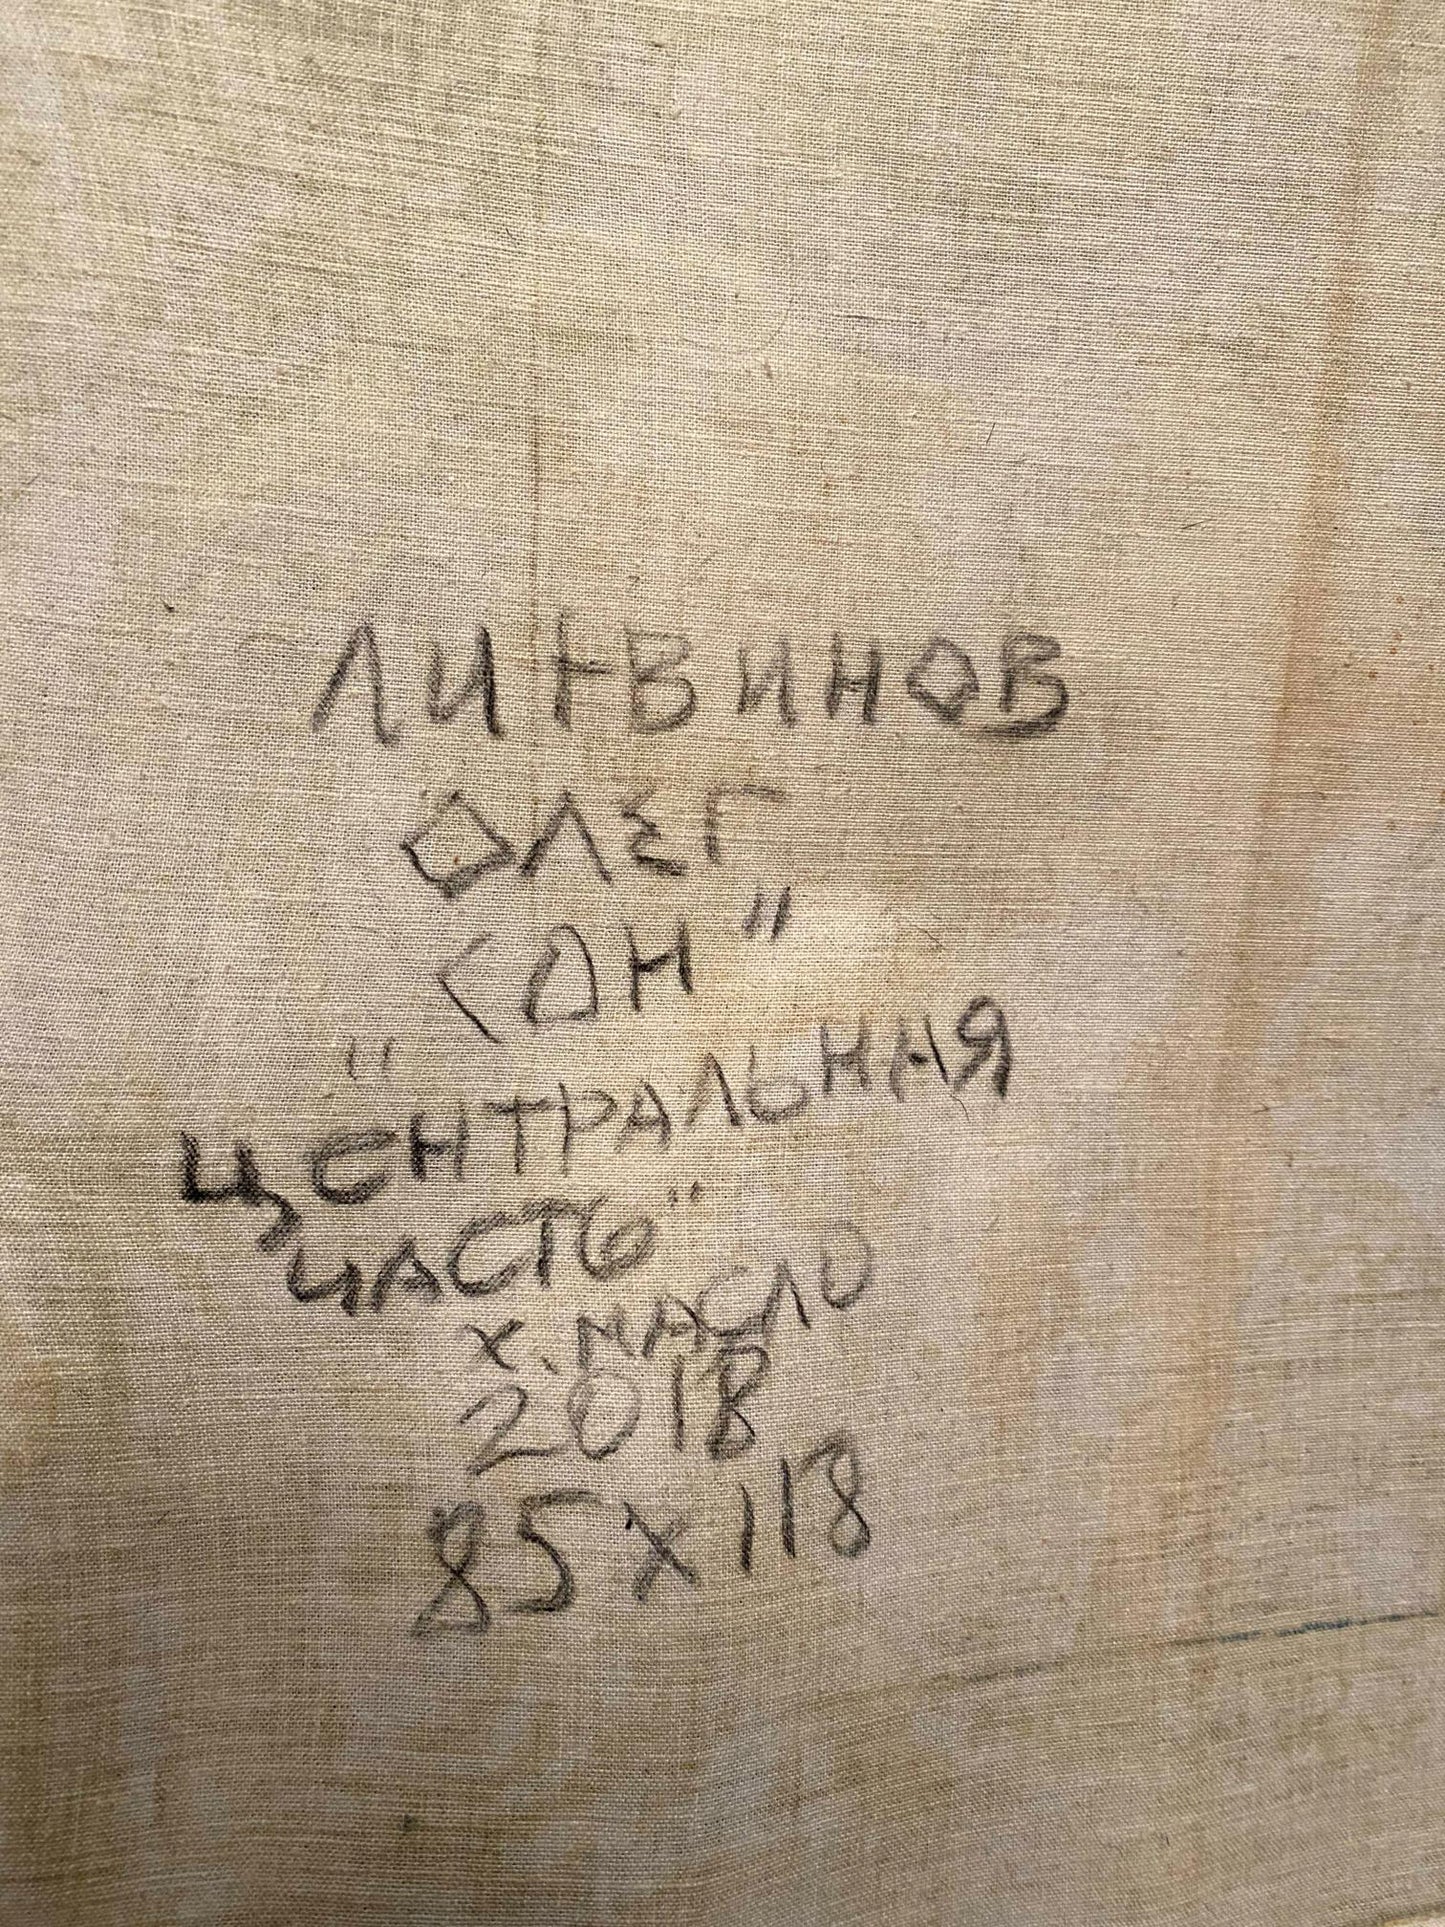 ЛИТВИНОВ
ОЛЕГ
СОН"
"
ЦЕНТРАЛЬНАЯ
ЧАСТЬ"
х. МАСЛО
2018
85 х 118